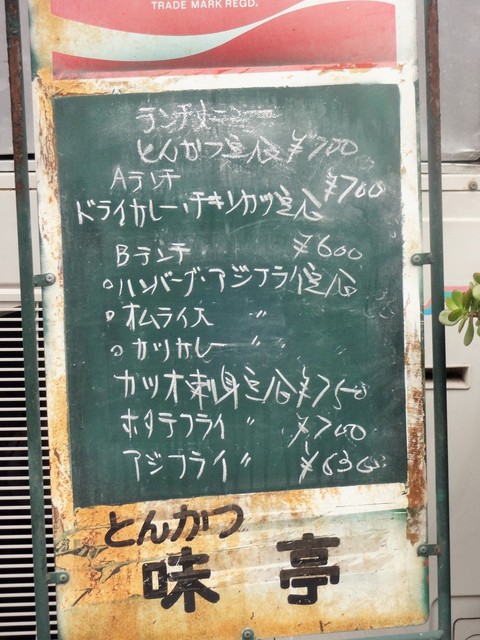 TRADE MARK REGD.
ランチメニュー
とんかつ定食 ¥700
Aランチ ¥700
ドライカレー・チキンカツ定食
Bランチ ¥600
○ハンバーグ・アジフライ定食
○オムライス 〃
○カツカレー 〃
カツオ刺身定食 ¥750
ホタテフライ 〃 ¥700
アジフライ 〃 ¥630
とんかつ
味亭